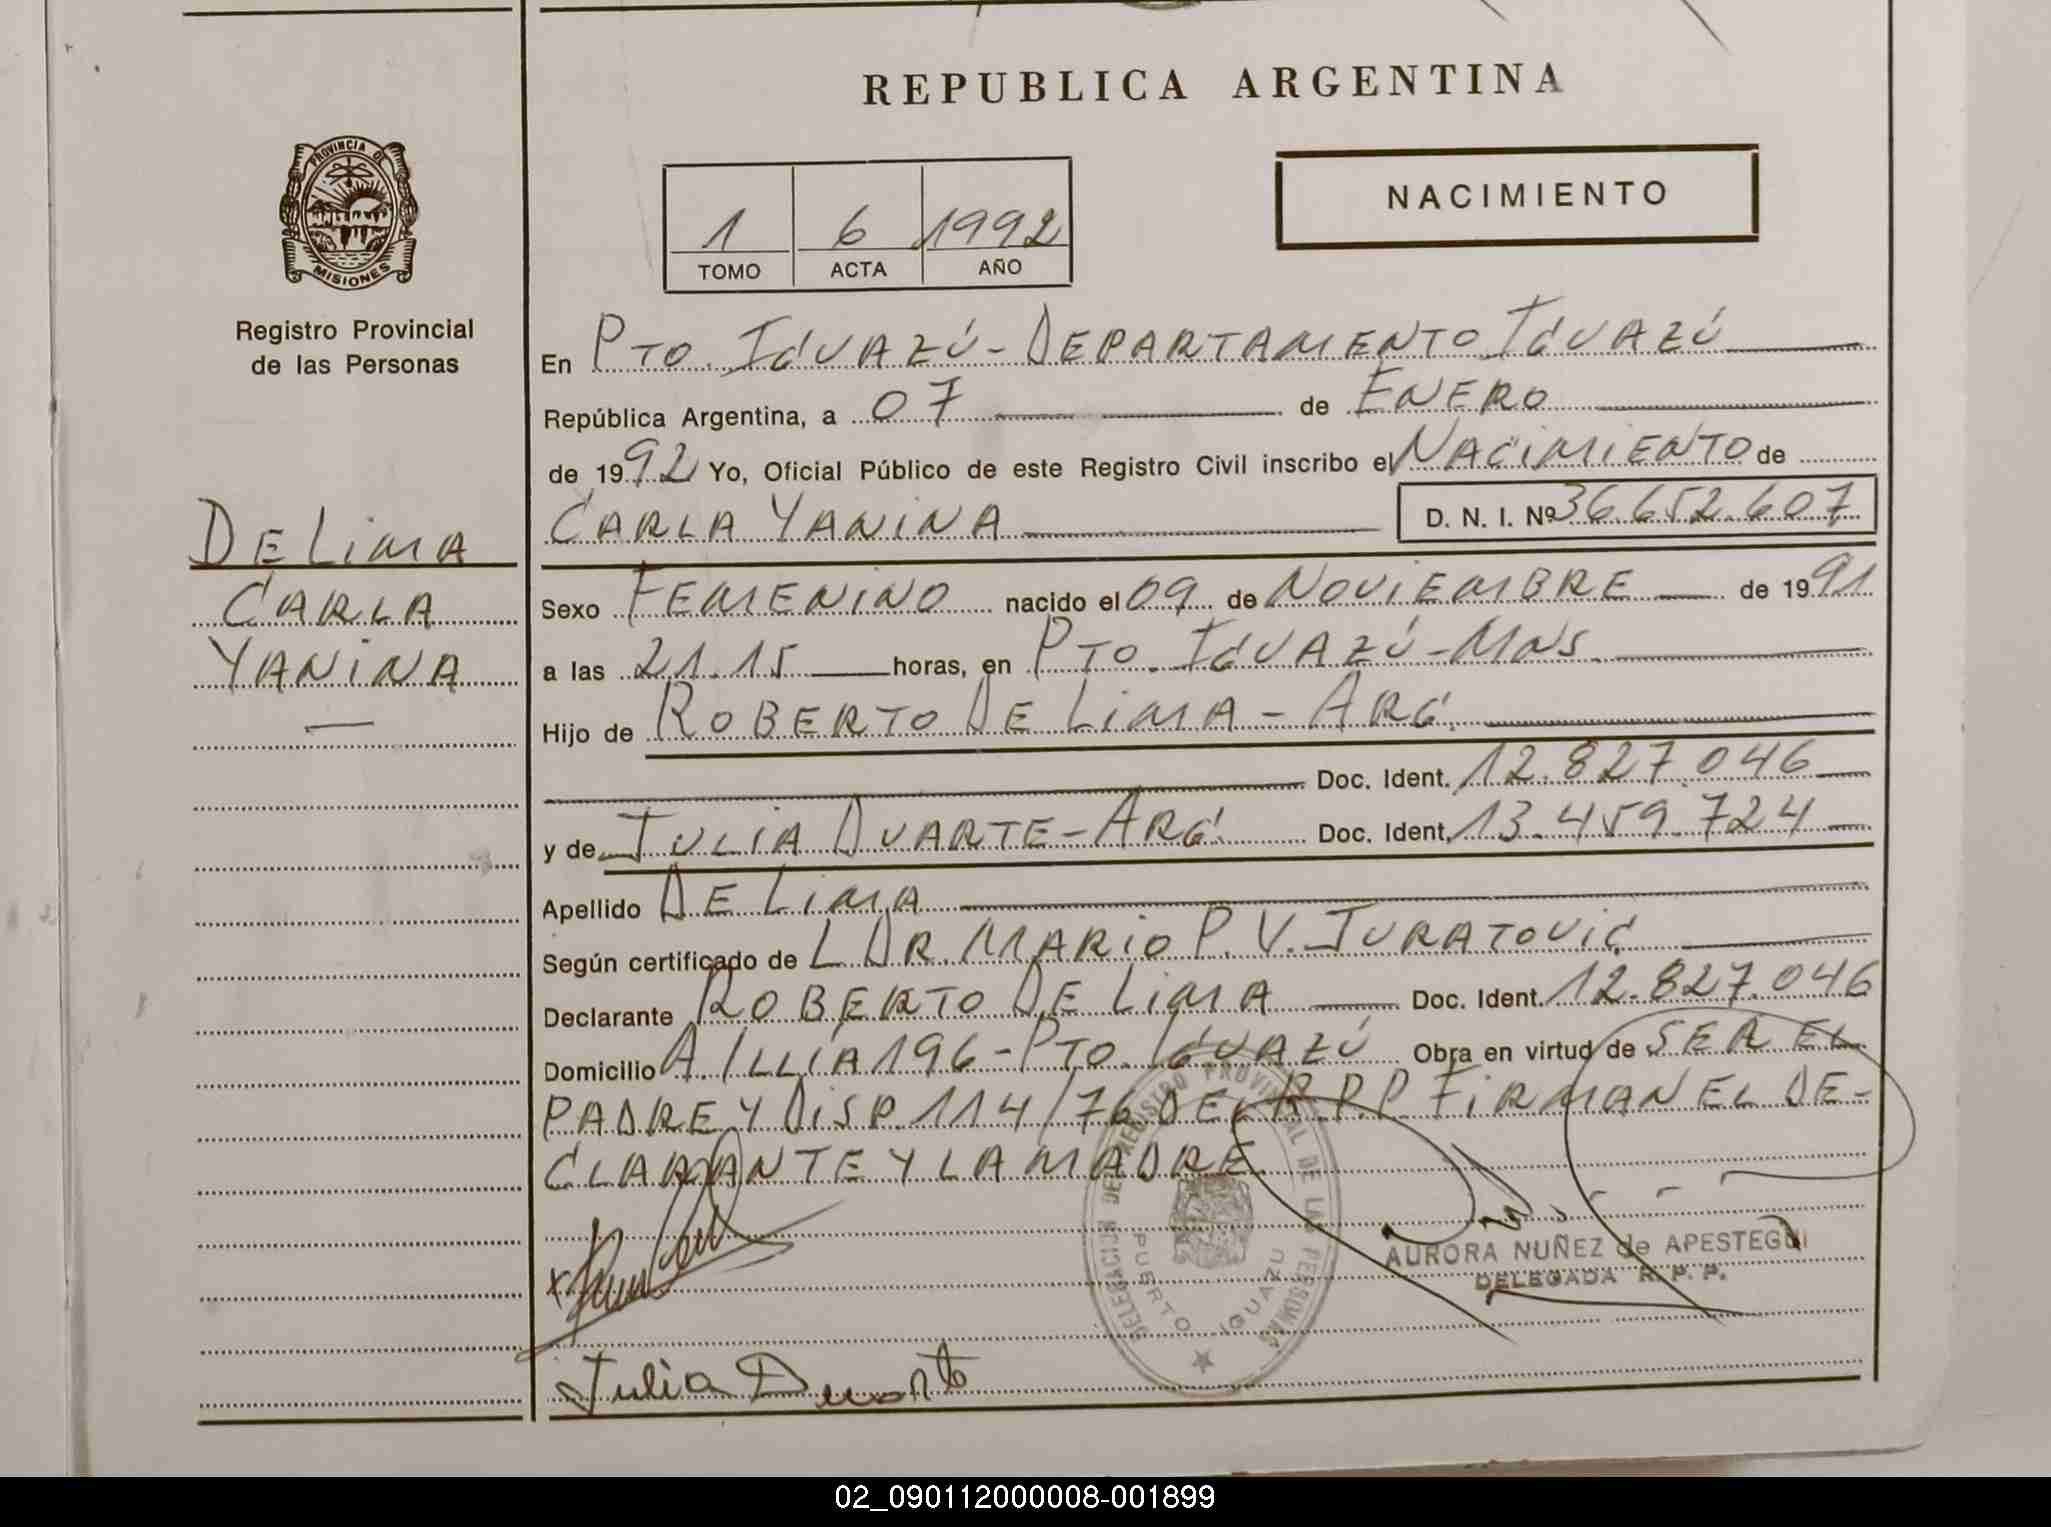 REPUBLICA ARGENTINA
PROVINCIA DE
MISIONES
Registro Provincial
de las Personas
1 6 1992
TOMO ACTA AÑO
NACIMIENTO
DE LIMA
CARLA
YANINA
En PTO. IGUAZÚ - DEPARTAMENTO IGUAZÚ
República Argentina, a 07 de ENERO
de 1992 Yo, Oficial Público de este Registro Civil inscribo el NACIMIENTO de
CARLA YANINA D. N. I. Nº 36.652.607
Sexo FEMENINO nacido el 09 de NOVIEMBRE de 1991
a las 21.15 horas, en PTO. IGUAZÚ - MNS.
Hijo de ROBERTO DE LIMA - ARG.
Doc. Ident. 12.827.046
y de JULIA DUARTE - ARG. Doc. Ident. 13.459.724
Apellido DE LIMA
Según certificado de L DR. MARIO P. V. JURATOVIC
Declarante ROBERTO DE LIMA Doc. Ident. 12.827.046
Domicilio A. ILLIA 196 - PTO. IGUAZÚ Obra en virtud de SER EL
PADRE Y DISP. 114/76 DEL R.P.P. FIRMAN EL DE-
CLARANTE Y LA MADRE
DELEGACION DEL REGISTRO PROVINCIAL DE LAS PERSONAS
PUERTO IGUAZU
AURORA NUÑEZ de APESTEGUI
DELEGADA R. P. P.
Julia Duarte
02_090112000008-001899